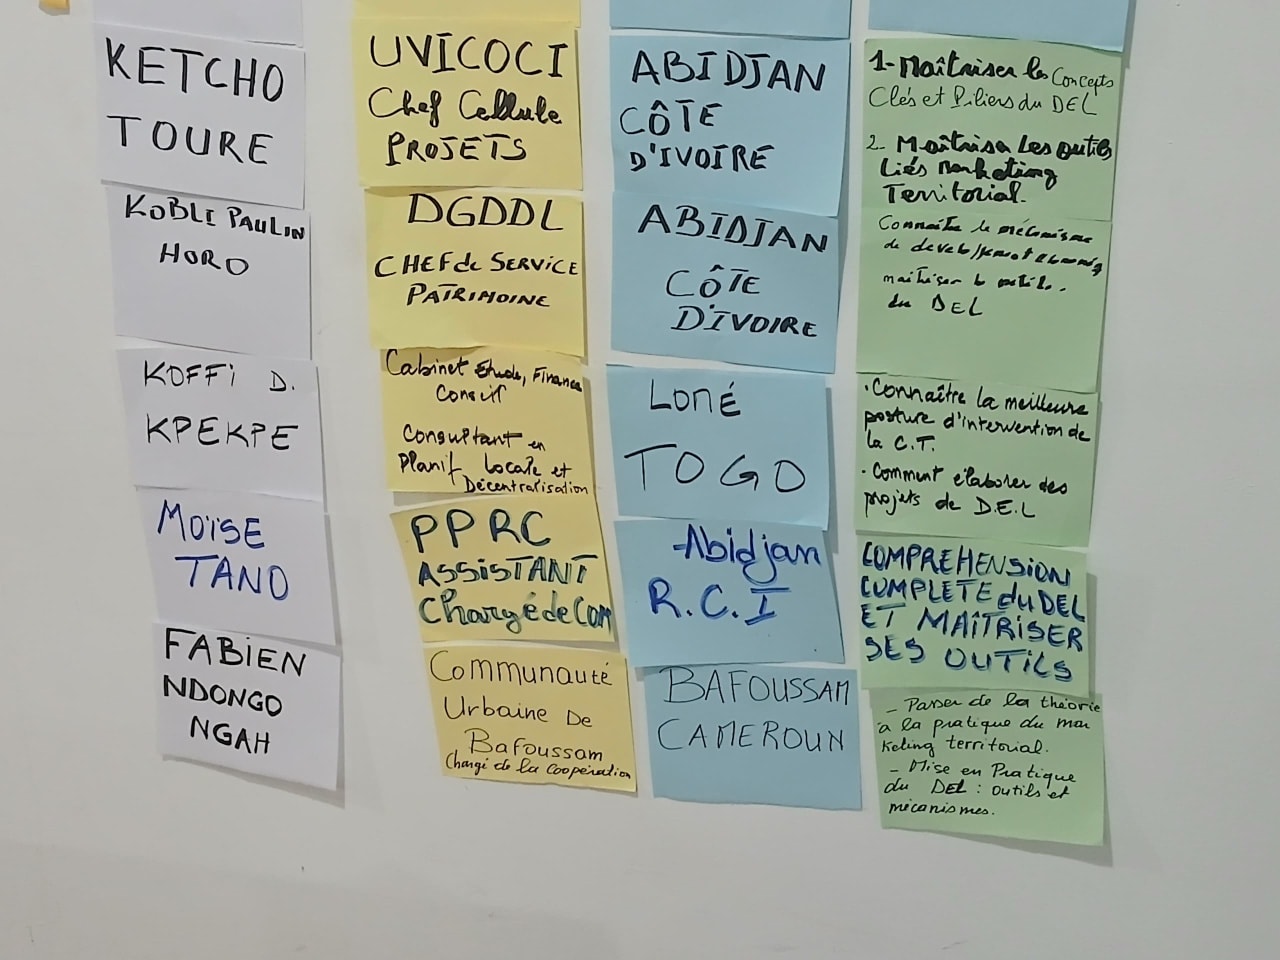 KETCHO
TOURE
UVICOCI
Chef Cellule
PROJETS
ABIDJAN
CÔTE
D'IVOIRE
1- Maîtriser les Concepts
Clés et Piliers du DEL
2- Maîtriser Les outils
Liés Marketing
Territorial.
KOBLI PAULIN
HORO
DGDDL
CHEF de SERVICE
PATRIMOINE
ABIDJAN
CÔTE
D'IVOIRE
Connaître le mécanisme
de
maîtriser
du DEL
KOFFI D.
KPEKPE
Cabinet Etude, Finance
Conseil
Consultant en
Planif Locale et
Décentralisation
LOMÉ
TOGO
. Connaître la meilleure
posture d'intervention de
la C.T.
. Comment élaborer des
projets de D.E.L
MOÏSE
TANO
PPRC
ASSISTANT
Chargé de Com
-Abidjan
R.C.I
COMPREHENSION
COMPLÈTE du DEL
ET MAÎTRISER
SES OUTILS
FABIEN
NDONGO
NGAH
Communauté
Urbaine De
Bafoussam
Chargé de la Coopération
BAFOUSSAM
CAMEROUN
_ Passer de la théorie
à la pratique du mar
keting territorial.
_ Mise en Pratique
du DEL : outils et
mécanismes.